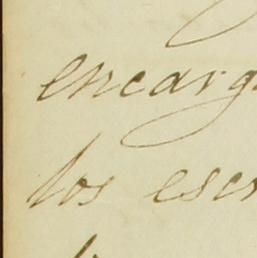 encarg
los esc